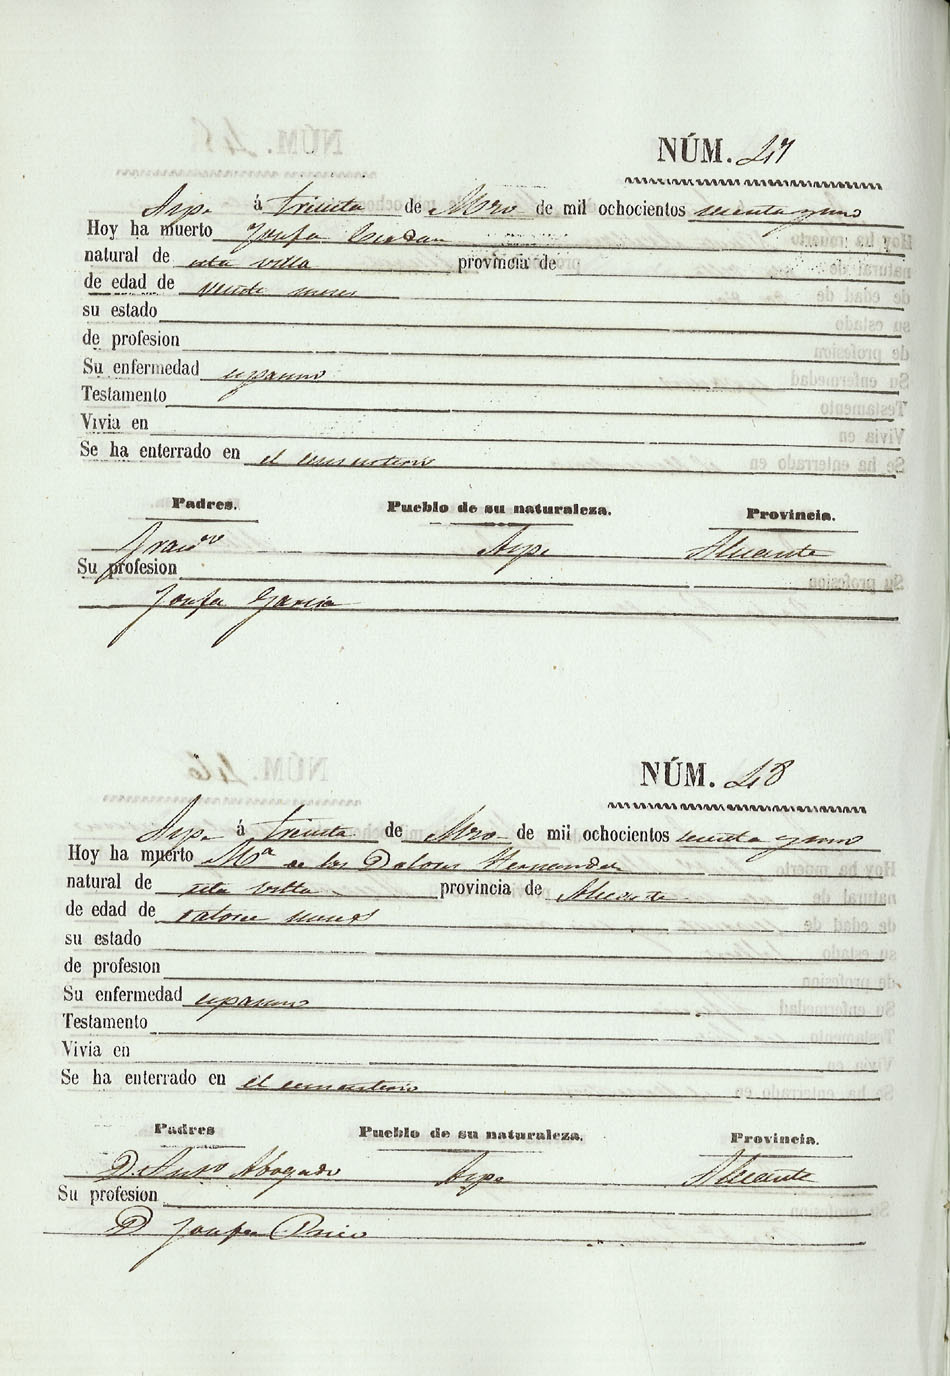 NÚM. 47
Aspe á treinta de Mzo de mil ochocientos sesenta y uno
Hoy ha muerto Josefa Cerdan
natural de esta villa provincia de
de edad de veinte meses
su estado
de profesion
Su enfermedad espasmo
Testamento
Vivia en
Se ha enterrado en el cementerio
Padres. Pueblo de su naturaleza. Provincia.
Franco Aspe Alicante
Su profesion
Josefa Garcia
NÚM. 48
Aspe á treinta de Mzo de mil ochocientos sesenta y uno
Hoy ha muerto Mª de los Dolores Hernandez
natural de esta villa provincia de Alicante
de edad de catorce meses
su estado
de profesion
Su enfermedad espasmo
Testamento
Vivia en
Se ha enterrado en el cementerio
Padres Pueblo de su naturaleza. Provincia.
D. Abogado Aspe Alicante
Su profesion
D Josefa